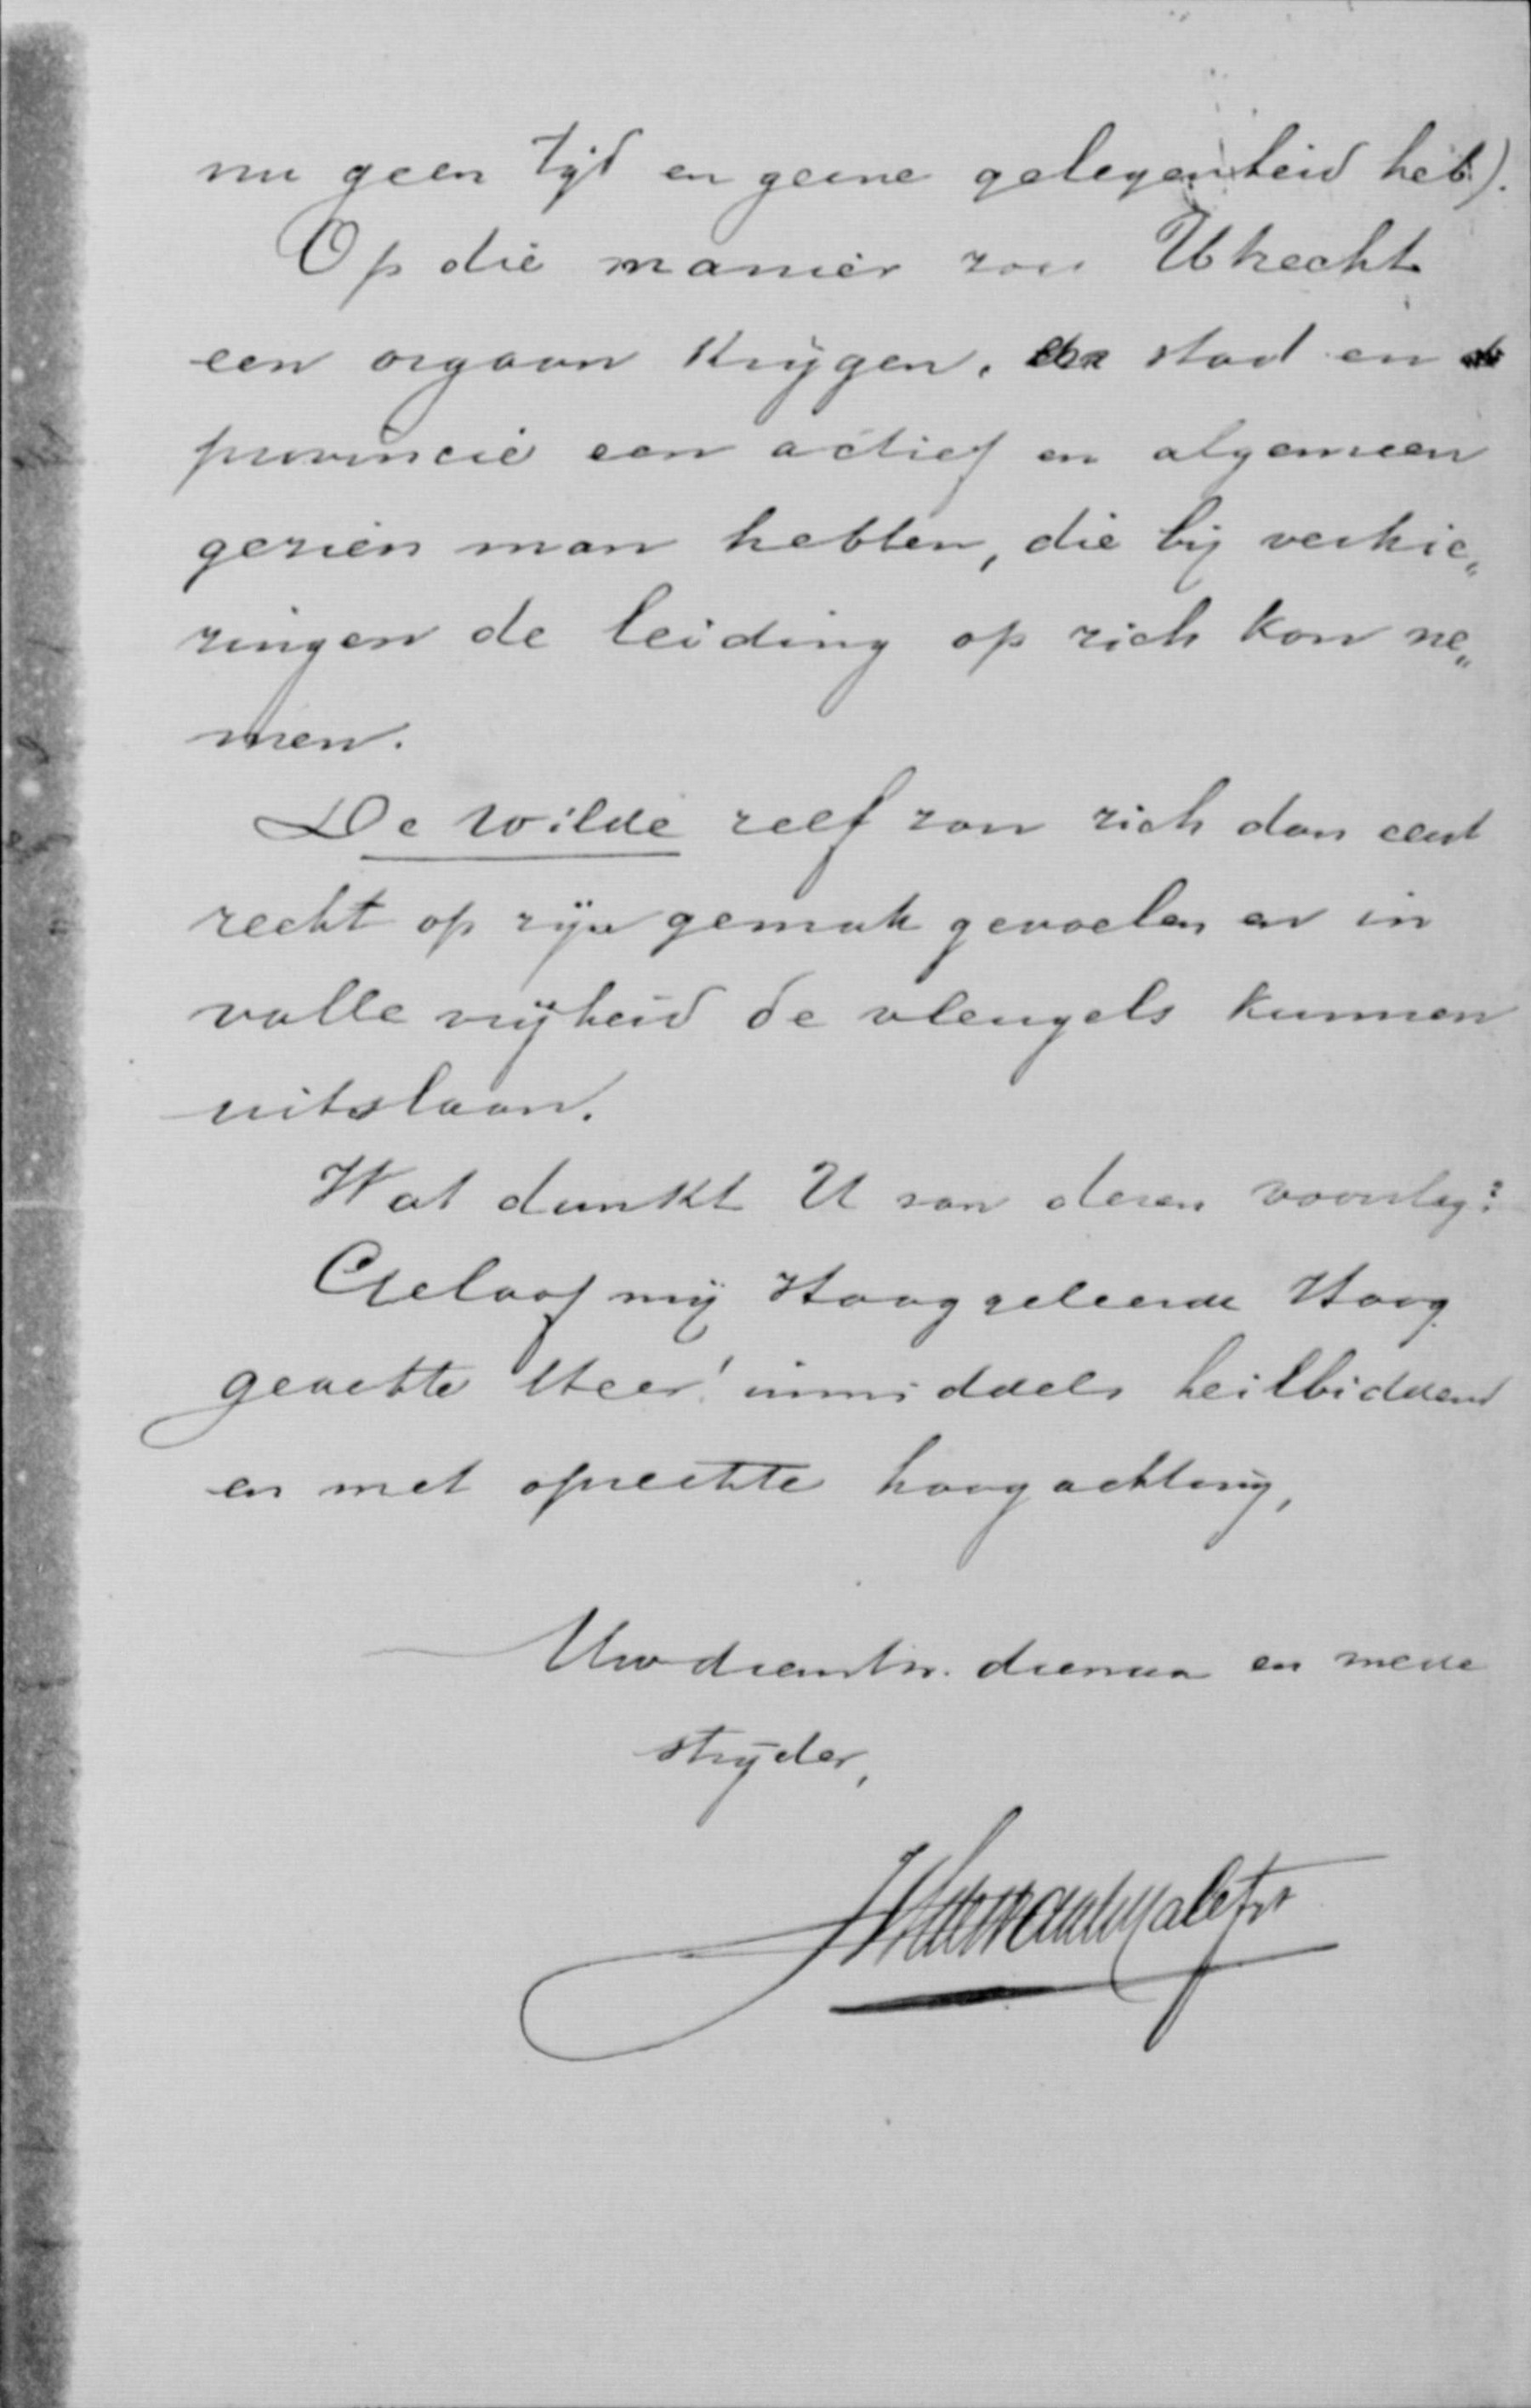 nu geen tijd en geene gelegenheid heb).
Op die manier zou Utrecht
een orgaan krijgen, stad en
provincie een actief en algemeen
gezien man hebben, die bij verkie„
zingen de leiding op zich kon ne„
men.
De Wilde zelf zou zich dan eerst
recht op zijn gemak gevoelen en in
volle vrijheid de vleugels kunnen
uitslaan.
Wat dunkt U van dezen voorslag?
Geloof mij Hooggeleerde Hoog
geachte Heer! inmiddels heilbiddend
en met oprechte hoogachting,
Uw dienstw. dienaar en mede
strijder,